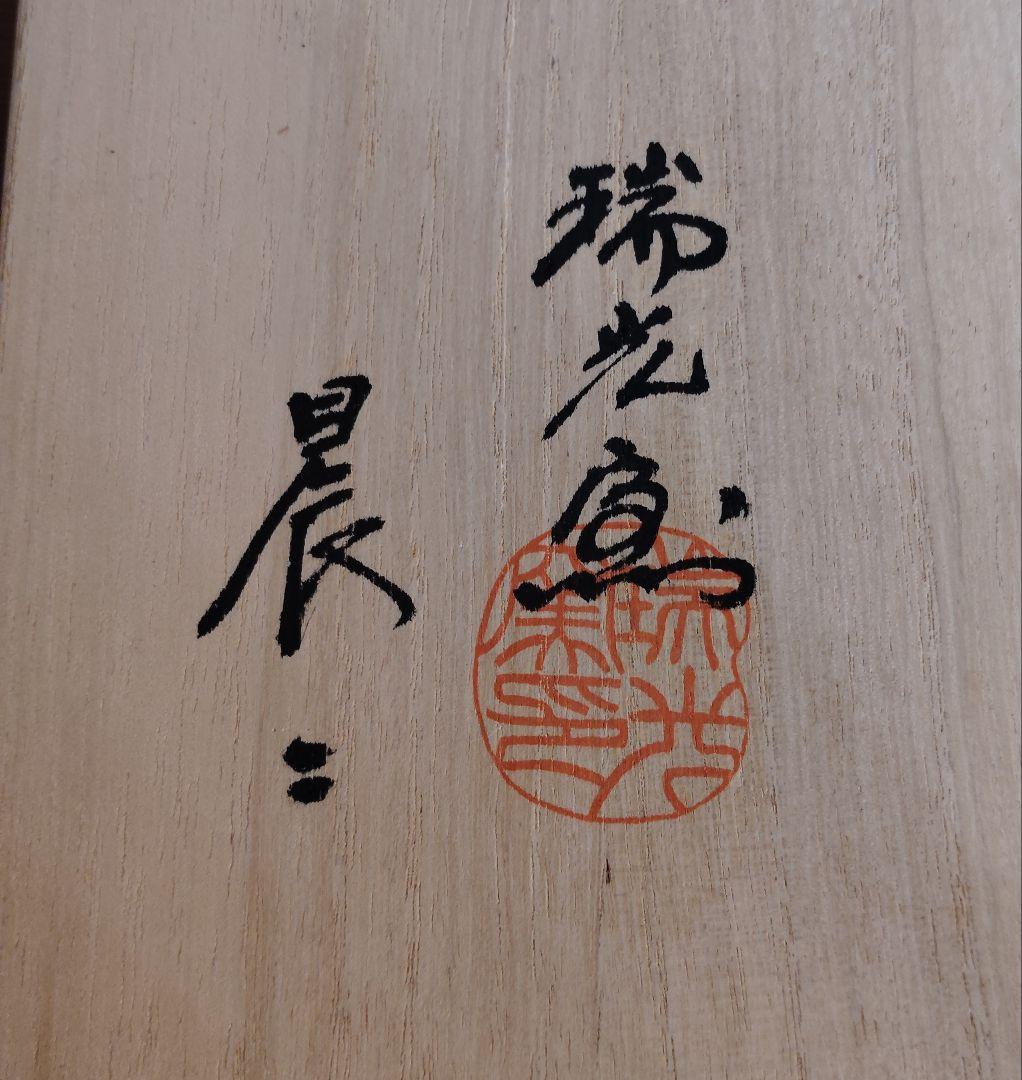 瑞光窯
晨二
瑞光
窯印